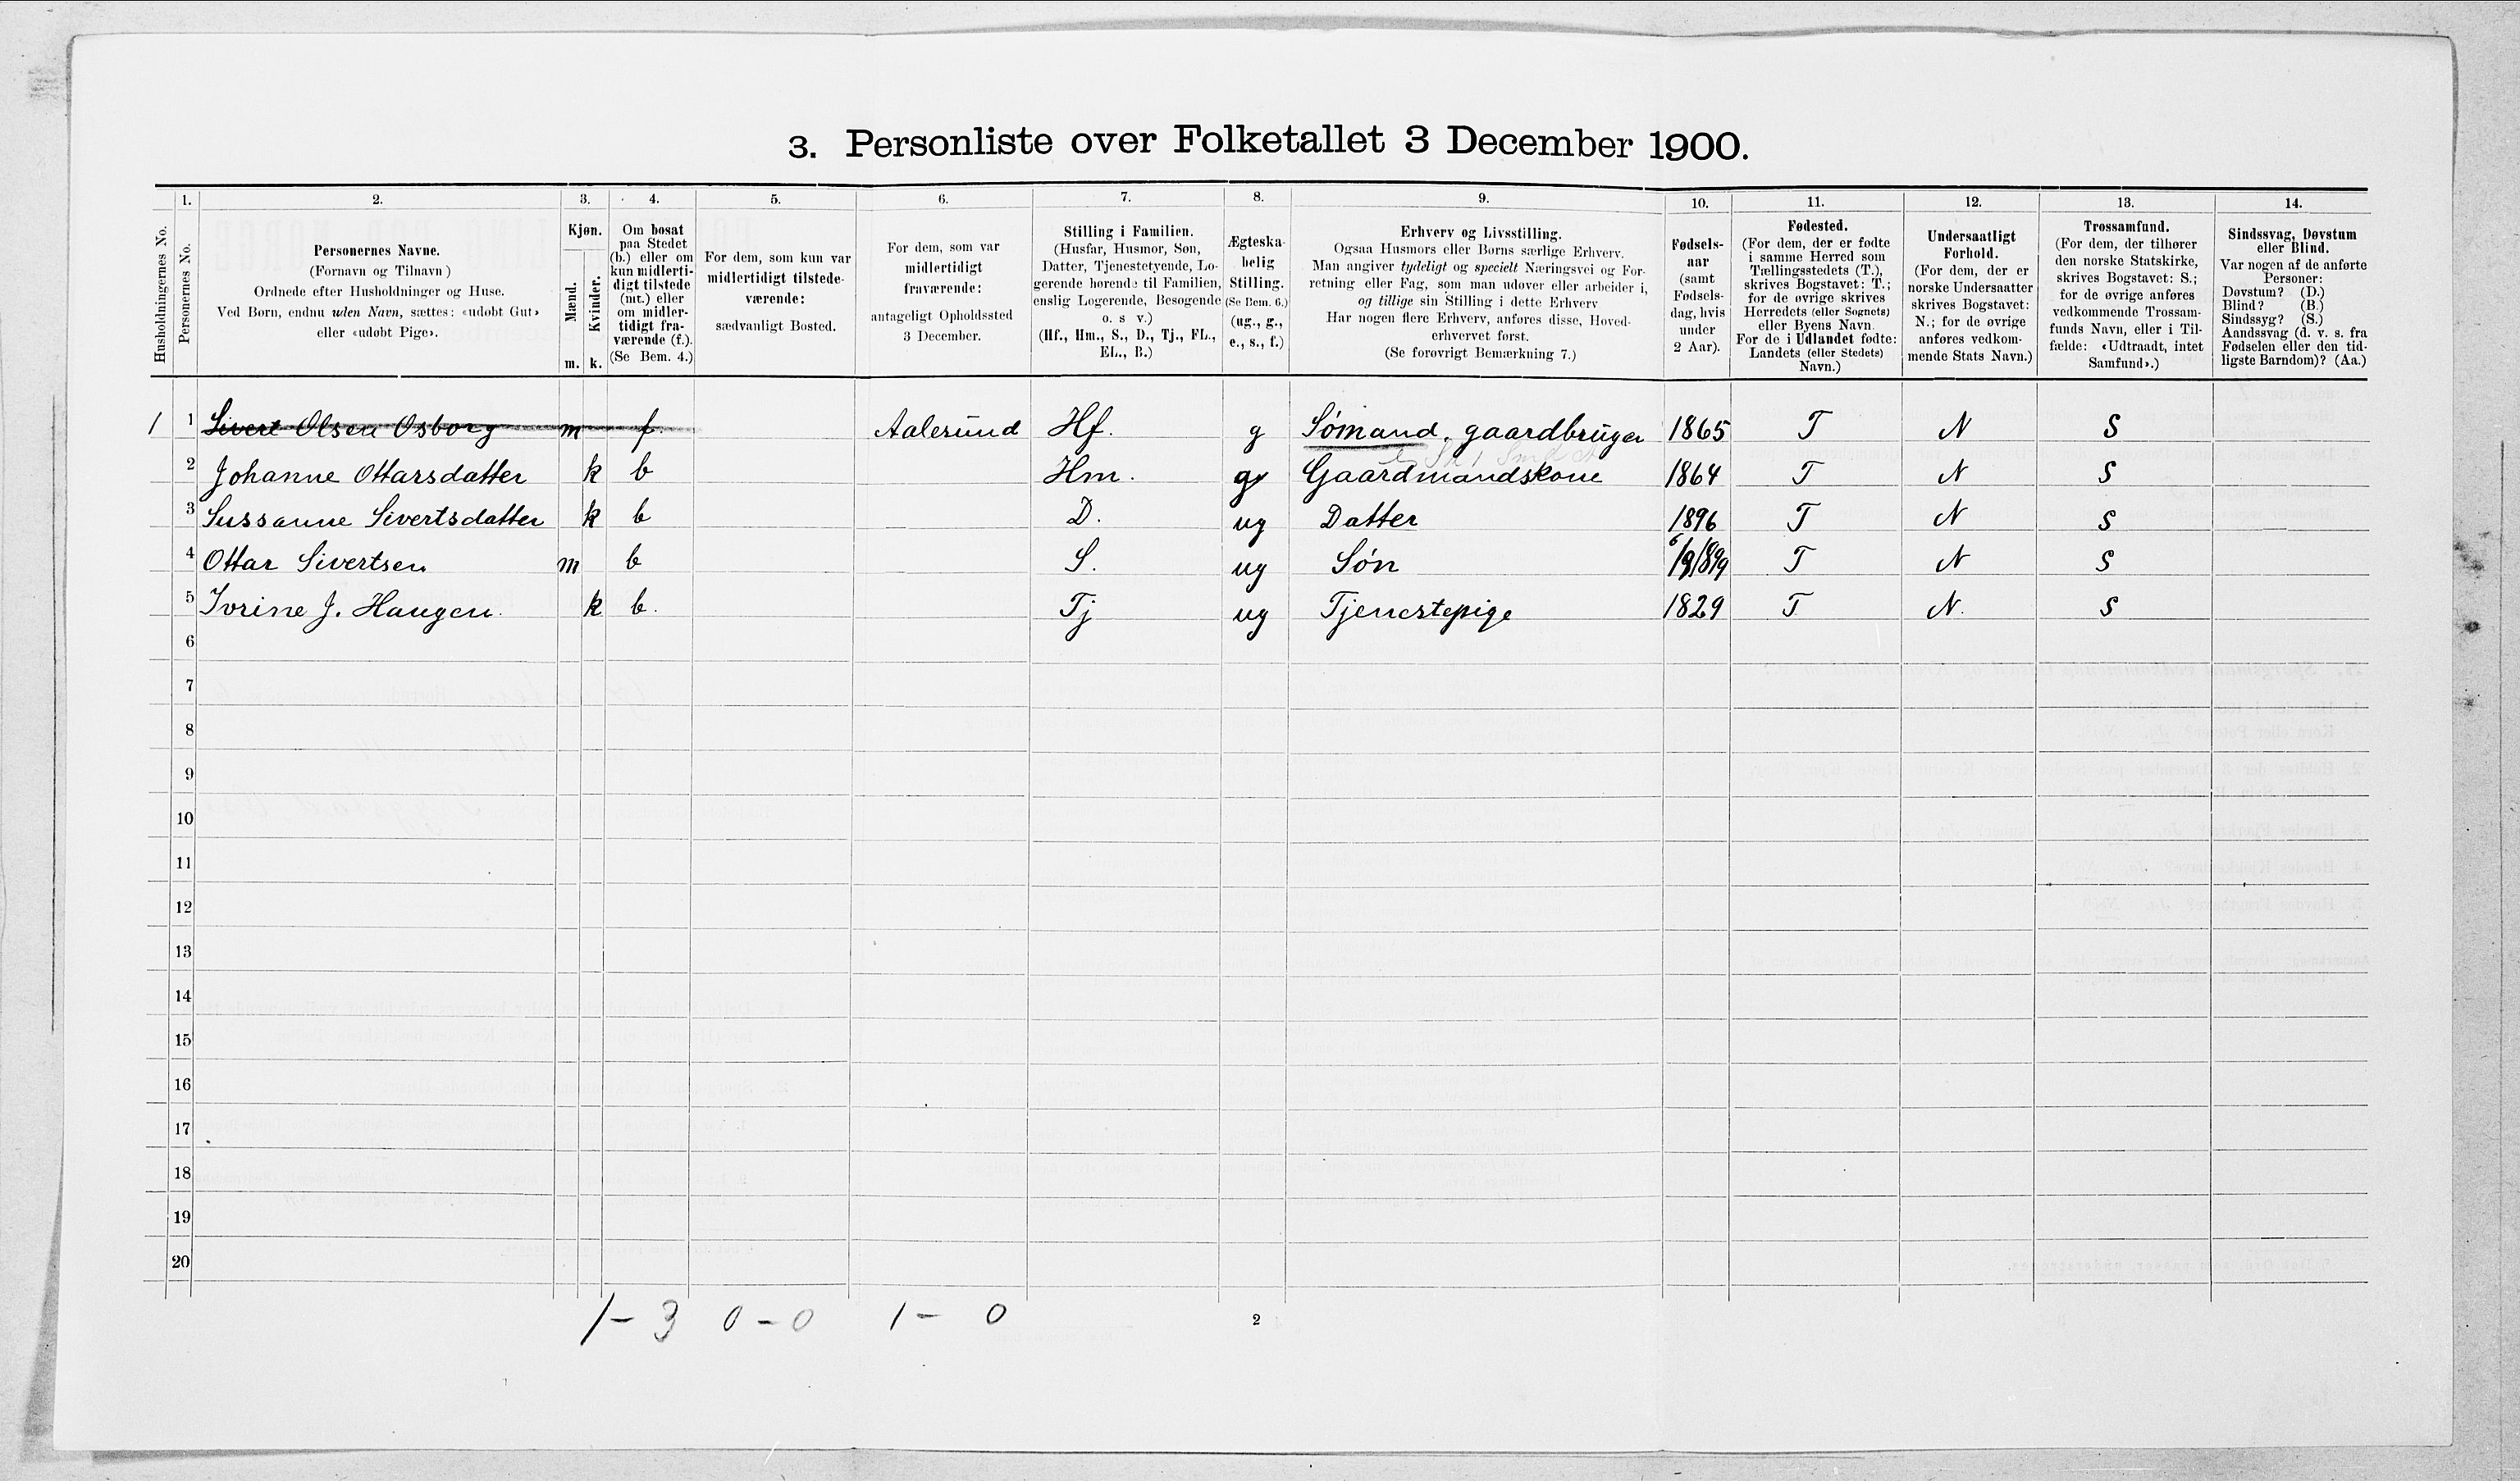 3. Personliste over Folketallet 3 December 1900.
1. 2. 3. 4. 5. 6. 7. 8. 9. 10. 11. 12. 13. 14.
Husholdningernes No.
Personernes No.
Personernes Navne.
(Fornavn og Tilnavn)
Ordnede efter Husholdninger og Huse.
Ved Børn, endnu uden Navn, sættes: «udøbt Gut»
eller «udøbt Pige».
Kjøn.
Mænd.
Kvinder.
m. k.
Om bosat
paa Stedet
(b.) eller om
kun midlerti-
digt tilstede
(mt.) eller
om midler-
tidigt fra-
værende (f.).
(Se Bem. 4.)
For dem, som kun var
midlertidigt tilstede-
værende:
sædvanligt Bosted.
For dem, som var
midlertidigt
fraværende:
antageligt Opholdssted
3 December.
Stilling i Familien.
(Husfar, Husmor, Søn,
Datter, Tjenestetyende, Lo-
gerende hørende til Familien,
enslig Logerende, Besøgende
o. s v.)
(Hf., Hm., S., D., Tj., FL.,
EL., B.)
Ægteska-
belig
Stilling.
(Se Bem. 6.)
(ug., g.,
e., s., f.)
Erhverv og Livsstilling.
Ogsaa Husmors eller Børns særlige Erhverv.
Man angiver tydeligt og specielt Næringsvei og For-
retning eller Fag, som man udøver eller arbeider i,
og tillige sin Stilling i dette Erhverv
Har nogen flere Erhverv, anføres disse, Hoved-
erhvervet først.
(Se forøvrigt Bemærkning 7.)
Fødsels-
aar
(samt
Fødsels-
dag, hvis
under
2 Aar).
Fødested.
(For dem, der er fødte
i samme Herred som
Tællingsstedets (T.),
skrives Bogstavet: T.;
for de øvrige skrives
Herredets (eller Sognets)
eller Byens Navn.
For de i Udlandet fødte:
Landets (eller Stedets)
Navn.)
Undersaatligt
Forhold.
(For dem, der er
norske Undersaatter
skrives Bogstavet:
N.; for de øvrige
anføres vedkom-
mende Stats Navn.)
Trossamfund.
(For dem, der tilhører
den norske Statskirke,
skrives Bogstavet: S.;
for de øvrige anføres
vedkommende Trossam-
funds Navn, eller i Til-
fælde: «Udtraadt, intet
Samfund».)
Sindssvag, Døvstum
eller Blind.
Var nogen af de anførte
Personer:
Døvstum? (D.)
Blind? (B.)
Sindssyg? (S.)
Aandssvag (d. v. s. fra
Fødselen eller den tid-
ligste Barndom)? (Aa.)
1 1 Sivert Olsen Osborg m f. Aalesund Hf. g Sømand, gaardbruger 1865 T N S
2 Johanne Ottarsdatter k b Hm. g Gaardmandskone 1864 T N S
3 Sussanne Sivertsdatter k b D. ug Datter 1896 T N S
4 Ottar Sivertsen m b S. ug Søn T N S
5 Ivrine J. Haugen. k b. Tj ug Tjenestepige 1829 T N. S
6
7
8
9
10
11
12
13
14
15
16
17
18
19
20
1 - 3 0 - 0 1 - 0
2